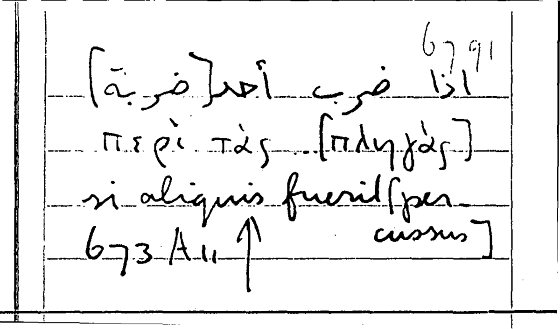 6791
اذا ضرب أحد [ضربة]
περὶ τὰς ... [πληγὰς]
si aliquis fuerit [per-
cussus]
673 A 11 ↑